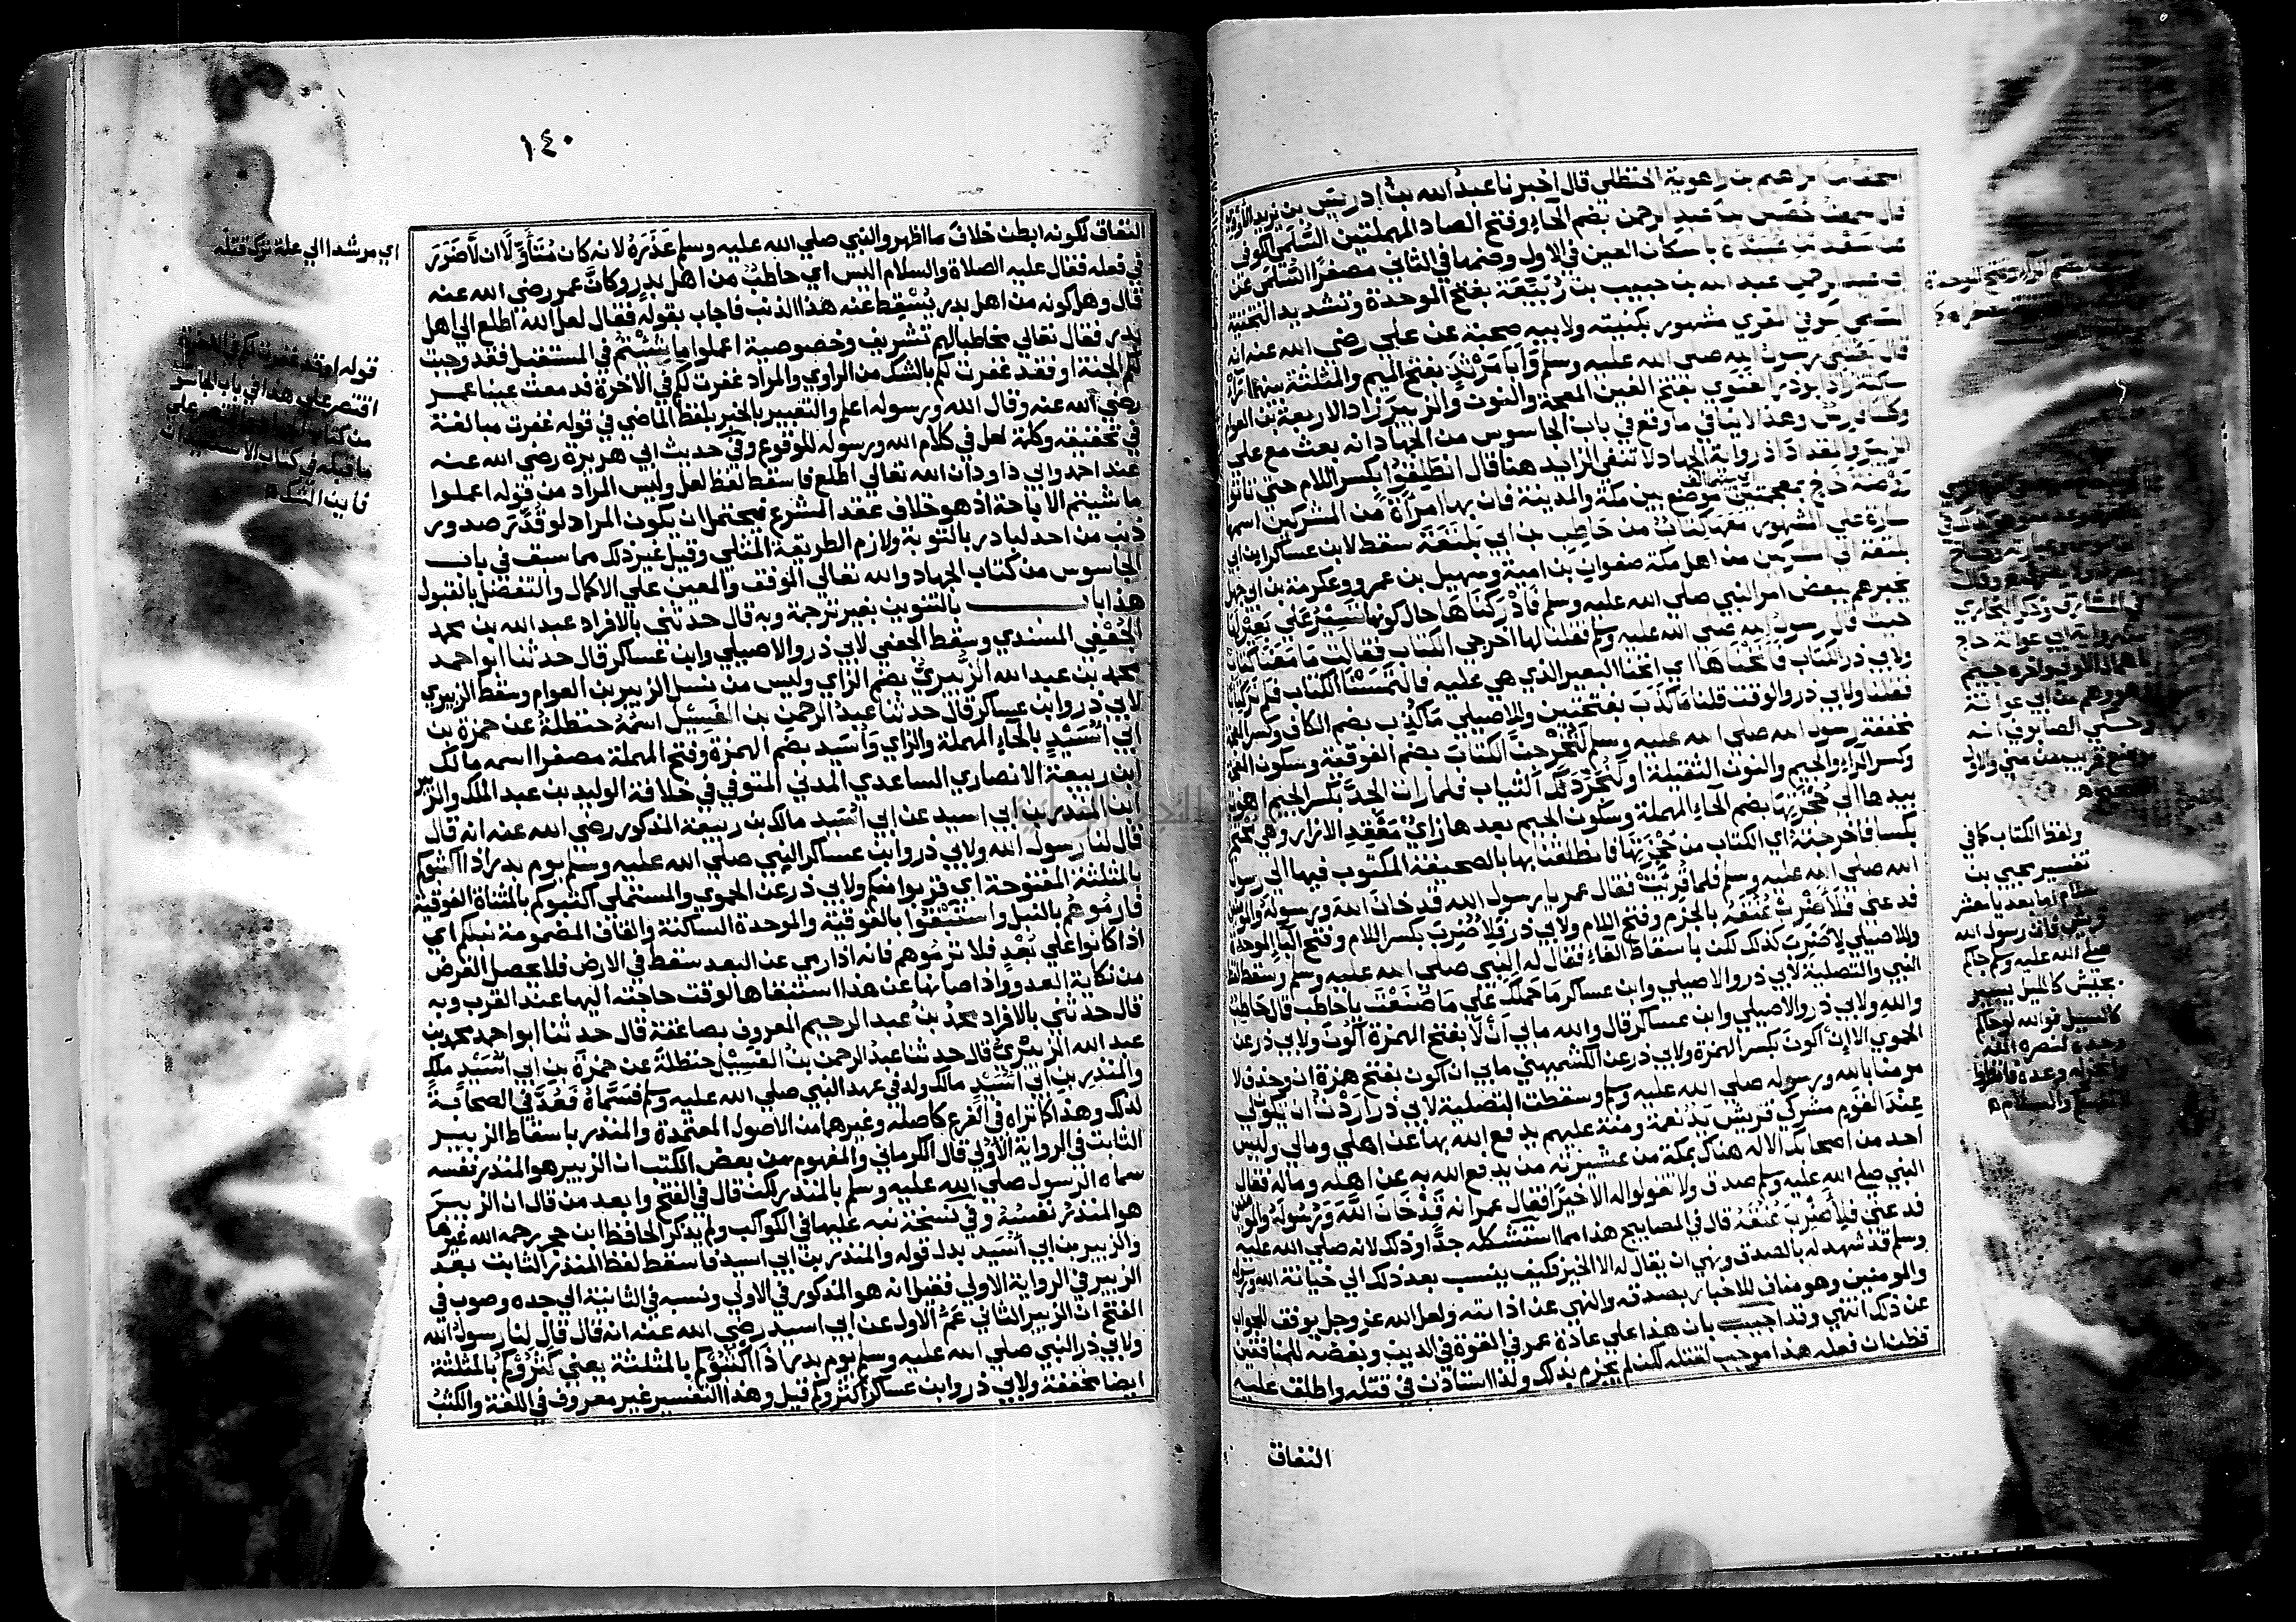 اسحق بن ابراهيم بن راهوية الحنظلي قال اخبرنا عبد الله بن ادريس بن يزيد الاودي
قال سمعت حصين بن عبد الرحمن بضم الحاء وفتح الصاد المهملتين السلمي الكوفي
عن سعد بن عبيدة باسكان العين في الاول وضمها في الثاني مصغرا السلمي عن
ابي عبد الرحمن عبد الله بن حبيب بن ربيعة بفتح الموحدة وتشديد التحتية
السلمي الكوفي المقري مشهور بكنيته ولابيه صحبة عن علي رضي الله عنه انه
قال بعثني رسول الله صلي الله عليه وسلم وَاَبَا مَرْثَدٍ بفتح الميم والمثلثة بينهما راء
ساكنة زاد ابو ذر الغنوي بفتح الغين المعجمة والنون والزبير زاد الاربعة بن العوام
وكلنا فارس وهذا لاينافي ما وقع في باب الجاسوس من الجهاد انه بعث مع علي
الزبير والمقداد اذ رواية الجهاد لا تنفي الزايد هنا قال انطلقوا بكسر اللام حتي تاتوا
روضة خاخ بمعجمتين موضع بين مكة والمدينة فان بها امراة من المشركين اسمها
سارة علي المشهور معها كتاب من حاطب بن ابي بلتعة سقط لابن عساكر ابن ابي
بلتعة الي المشركين من اهل مكة صفوان بن امية وسهيل بن عمرو وعكرمة بن ابي جهل
يخبرهم ببعض امر النبي صلي الله عليه وسلم فادركناها حال كونها تسير علي بعير لها
حيث قال رسول الله صلي الله عليه وسلم فقلنا لها اخرجي الكتاب فقالت ما معنا كتاب
ولابي ذر الكتاب فانخناها اي انخنا البعير الذي هي عليه فالتمسنا الكتاب فلم نر كتابا
فقلنا ولابي ذر والوقت قلنا ما كذب بفتحتين وللاصيلي ما كُذِب بضم الكاف وكسر الذال
مخففة رسول الله صلي الله عليه وسلم لتخرجن الكتاب بضم الفوقية وسكون الخاء
وكسر الراء والجيم والنون الثقيلة او لنجردنك الثياب فلما رات الجد بكسر الجيم اهوت
بيدها الي حجزتها بضم الحاء المهملة وسكون الجيم بعدها زاي معقد الازار وهي محتجزة
بكسا فاخرجته اي الكتاب من حجزتها فانطلقنا بها بالصحيفة المكتوب فيها الي رسول
الله صلي الله عليه وسلم فلما قرئت فقال عمر يا رسول الله قد خان الله ورسوله والمومنين
فدعني فلاضرب عنقه بالجزم وفتح اللام ولابي ذر فلاضرب بكسر اللام وفتح الموحدة
وللاصيلي لاضرب كذلك لكن باسقاط الفاء فقال له النبي صلي الله عليه وسلم وسقط لفظ
النبي والتصلية لابي ذر والاصيلي وابن عساكر ما حملك علي ما صنعت يا حاطب قال حاطب
والله ولابي ذر والاصيلي وابن عساكر قال والله مابي ان لا بفتح الهمزة اكون ولابي ذر عن
الحموي الا ان اكون بكسر الهمزة ولابي ذر عن الكشميهني مابي ان اكون بفتح همزة ان وحذف لا
مومنا بالله ورسوله صلي الله عليه وسلم وسقطت التصلية لابي ذر اردت ان يكون لي
عند القوم مشركي قريش يد نعمة ومنة عليهم يدفع الله بها عن اهلي ومالي وليس
احد من اصحابك الا له هناك بمكة من عشيرته من يدفع الله به عن اهله وماله فقال
النبي صلي الله عليه وسلم صدق ولا تقولوا له الا خيرا فقال عمر انه قد خان الله ورسوله والمومنين
فدعني فلاضرب عنقه قال في المصابيح هذا مما استشكله جدا وذلك لانه صلي الله عليه
وسلم قد شهد له بالصدق ونهي ان يقال له الا الخير فكيف ينسب بعد ذلك الي خيانة الله ورسوله
والمومنين وهو مناف للاخبار بصدقه والنهي عن اذايته ولعل الله عز وجل يوفق للجواب
عن ذلك انتهي وقد اجيب بان هذا علي عادة عمر في القوة في الدين وبغضه للمنافقين
فظن ان فعله هذا موجب لقتله لكن لم يجزم بذلك ولذا استاذن في قتله واطلق عليه
النفاق
ولفظ الكتاب كما في
تفسير يحيي بن
سلام اما بعد يا معشر
قريش فان رسول الله
صلي الله عليه وسلم جاكم
بجيش كالليل يسير
كالسيل فوالله لو جاكم
وحده لنصره الله
وانجز له وعده فانظروا
لانفسكم والسلام
١٤٠
النفاق لكونه ابطن خلاف ما اظهر والنبي صلي الله عليه وسلم عذره لانه كان متاولا ان لا ضرر
في فعله فقال عليه الصلاة والسلام اليس اي حاطب من اهل بدر وكان عمر رضي الله عنه
قال وهل كونه من اهل بدر يسقط عنه هذا الذنب فاجاب بقوله فقال لعل الله اطلع الي اهل
بدر فقال تعالي مخاطبا لهم تشريف وخصوصية اعملوا ما شئتم في المستقبل فقد وجبت
لكم الجنة او فقد غفرت لكم بالشك من الراوي والمراد غفرت لكم في الاخرة فدمعت عينا عمر
رضي الله عنه وقال الله ورسوله اعلم والتعبير بالخبر بلفظ الماضي في قوله غفرت مبالغة
في تحقيقه وكلمة لعل في كلام الله ورسوله للوقوع وفي حديث ابي هريرة رضي الله عنه
عند احمد وابي داود ان الله تعالي اطلع فاسقط لفظ لعل وليس المراد من قوله اعملوا
ما شيتم الاباحة اذ هو خلاف عقد الشرع فيحتمل ان يكون المراد لو قدر صدور
ذنب من احد لبادر بالتوبة ولازم الطريقة المثلي وقيل غير ذلك مما سبق في باب
الجاسوس من كتاب الجهاد والله تعالي الموفق والمعين علي الاكمال والتفضل بالقبول
هذا باب بالتنوين بغير ترجمة وبه قال حدثني بالافراد عبد الله بن محمد
الجعفي المسندي وسقط الجعفي لابي ذر والاصيلي وابن عساكر قال حدثنا ابو احمد
محمد بن عبد الله الزبيري بضم الزاي وليس من نسل الزبير بن العوام وسقط الزبيري
لابي ذر وابن عساكر قال حدثنا عبد الرحمن بن الغسيل اسمه حنظلة عن حمزة بن
ابي اسيد بالحاء المهملة والزاي واسيد بضم الهمزة وفتح المهملة مصغرا اسمه مالك
ابن ربيعة الانصاري الساعدي المدني المتوفي في خلافة الوليد بن عبد الملك والزبير
ابن المنذر بن ابي اسيد عن ابي اسيد مالك بن ربيعة المذكور رضي الله عنه انه قال
قال لنا رسول الله ولابي ذر وابن عساكر النبي صلي الله عليه وسلم يوم بدر اذا اكثبوكم
بالمثلثة المفتوحة اي قربوا منكم ولابي ذر عن الحموي والمستملي اكتبوكم بالمثناة الفوقية
فارموهم بالنبل واستبقوا بالفوقية والموحدة الساكنة والقاف المضمومة نبلكم اي
اذا كانوا علي بعد فلا ترموهم فانه اذا رمي عن البعد سقط في الارض فلا يحصل الغرض
من نكاية العدو واذا صانها عن هذا استبقاها لوقت حاجته اليها عند القرب وبه
قال حدثني بالافراد محمد بن عبد الرحيم المعروف بصاعقة قال حدثنا ابو احمد محمد بن
عبد الله الزبيري قال حدثنا عبد الرحمن بن الغسيل حنظلة عن حمزة بن ابي اسيد ملك
والمنذر بن ابي اسيد مالك ولد في عهد النبي صلي الله عليه وسلم فسماه فعد في الصحابة
لذلك وهذا كما تراه في الفرع كاصله وغيرهما من الاصول المعتمدة والمنذر باسقاط الزبير
الثابت في الرواية الاولي قال الكرماني والمفهوم من بعض الكتب ان الزبير هو المنذر نفسه
سماه الرسول صلي الله عليه وسلم بالمنذر لكن قال في الفتح وابعد من قال ان الزبير
هو المنذر نفسه وفي نسخة نبه عليها في الكواكب ولم يذكر الحافظ ابن حجر رحمه الله غيرها
والزبير بن ابي اسيد بدل قوله والمنذر بن ابي اسيد فاسقط لفظ المنذر الثابت بعد
الزبير في الرواية الاولي فقيل انه هو المذكور في الاولي ونسبه في الثانية الي جده وصوب في
الفتح ان الزبير الثاني عم الاول عن ابي اسيد رضي الله عنه انه قال قال لنا رسول الله
ولابي ذر النبي صلي الله عليه وسلم يوم بدر اذا اكثبوكم بالمثلثة يعني كثروكم بالمثلثة
ايضا مخففة ولابي ذر وابن عساكر اكثروكم قيل وهذا التفسير غير معروف في اللغة والكثب
اي مرشدا الي علة ترك قتله
قوله او فقد غفرت لكم
اقتصر علي هذا في باب الجاسوس
من كتاب الجهاد واقتصر علي
ما قبله في كتاب الاستئذان